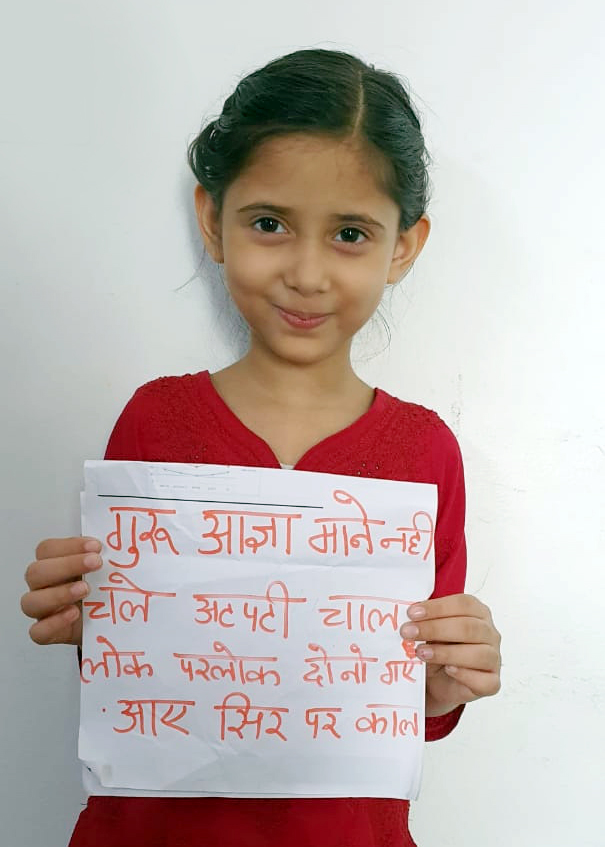 गुरू आज्ञा माने नही
चले अटपटी चाल
लोक परलोक दोनो गए
आए सिर पर काल